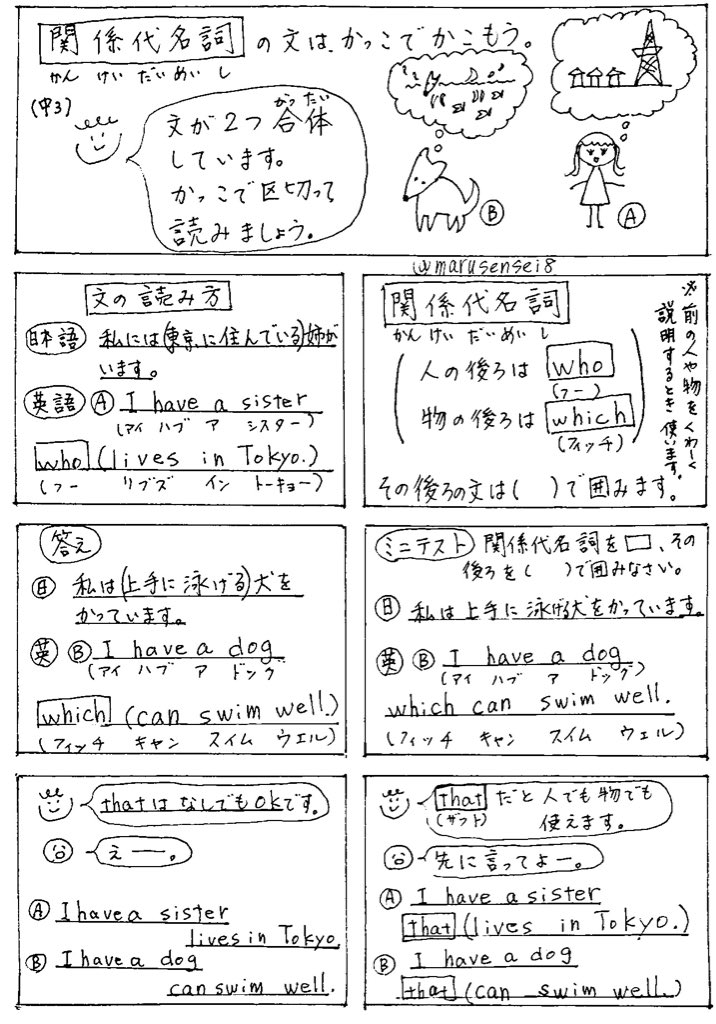 関係代名詞の文は、かっこでかこもう。
かん けい だい めい し
(中3)
がったい
文が2つ合体
しています。
かっこで区切って
読みましょう。
Ⓑ
Ⓐ
@marusensei8
関係代名詞
かん けい だい めい し
人の後ろは who
(フー)
物の後ろは which
(フィッチ)
※前の人や物をくわーく
説明するとき使います。
その後ろの文は( )で囲みます。
文の読み方
日本語 私には(東京に住んでいる)姉が
います。
英語 Ⓐ I have a sister
(アイ ハブ ア シスター)
who (lives in Tokyo.)
(フー リブズ イン トーキョー)
ミニテスト 関係代名詞を□、その
後ろを( )で囲みなさい。
日 私は上手に泳げる犬をかっています。
英 Ⓑ I have a dog
(アイ ハブ ア ドッグ)
which can swim well.
(フィッチ キャン スイム ウェル)
答え
日 私は(上手に泳げる)犬を
かっています。
英 Ⓑ I have a dog
(アイ ハブ ア ドング
which (can swim well.)
(フィッチ キャン スイム ウエル)
that だと人でも物でも
(ザット) 使えます。
先に言ってよー。
Ⓐ I have a sister
that (lives in Tokyo.)
Ⓑ I have a dog
that (can swim well.)
thatはなしでもOKです。
えー。
Ⓐ I have a sister
lives in Tokyo
Ⓑ I have a dog
can swim well.